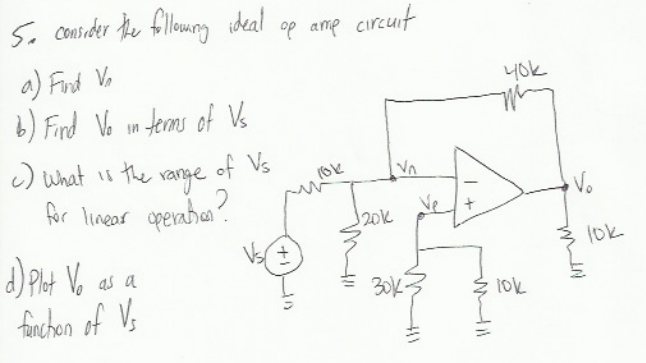 5. consider the following ideal op amp circuit
a) Find Vn
b) Find Vo in terms of Vs
c) What is the range of Vs
for linear operation?
d) Plot Vo as a
function of Vs
40k
10k
Vn
−
Vo
20k
Vp
+
10k
Vs
+
−
30k
10k